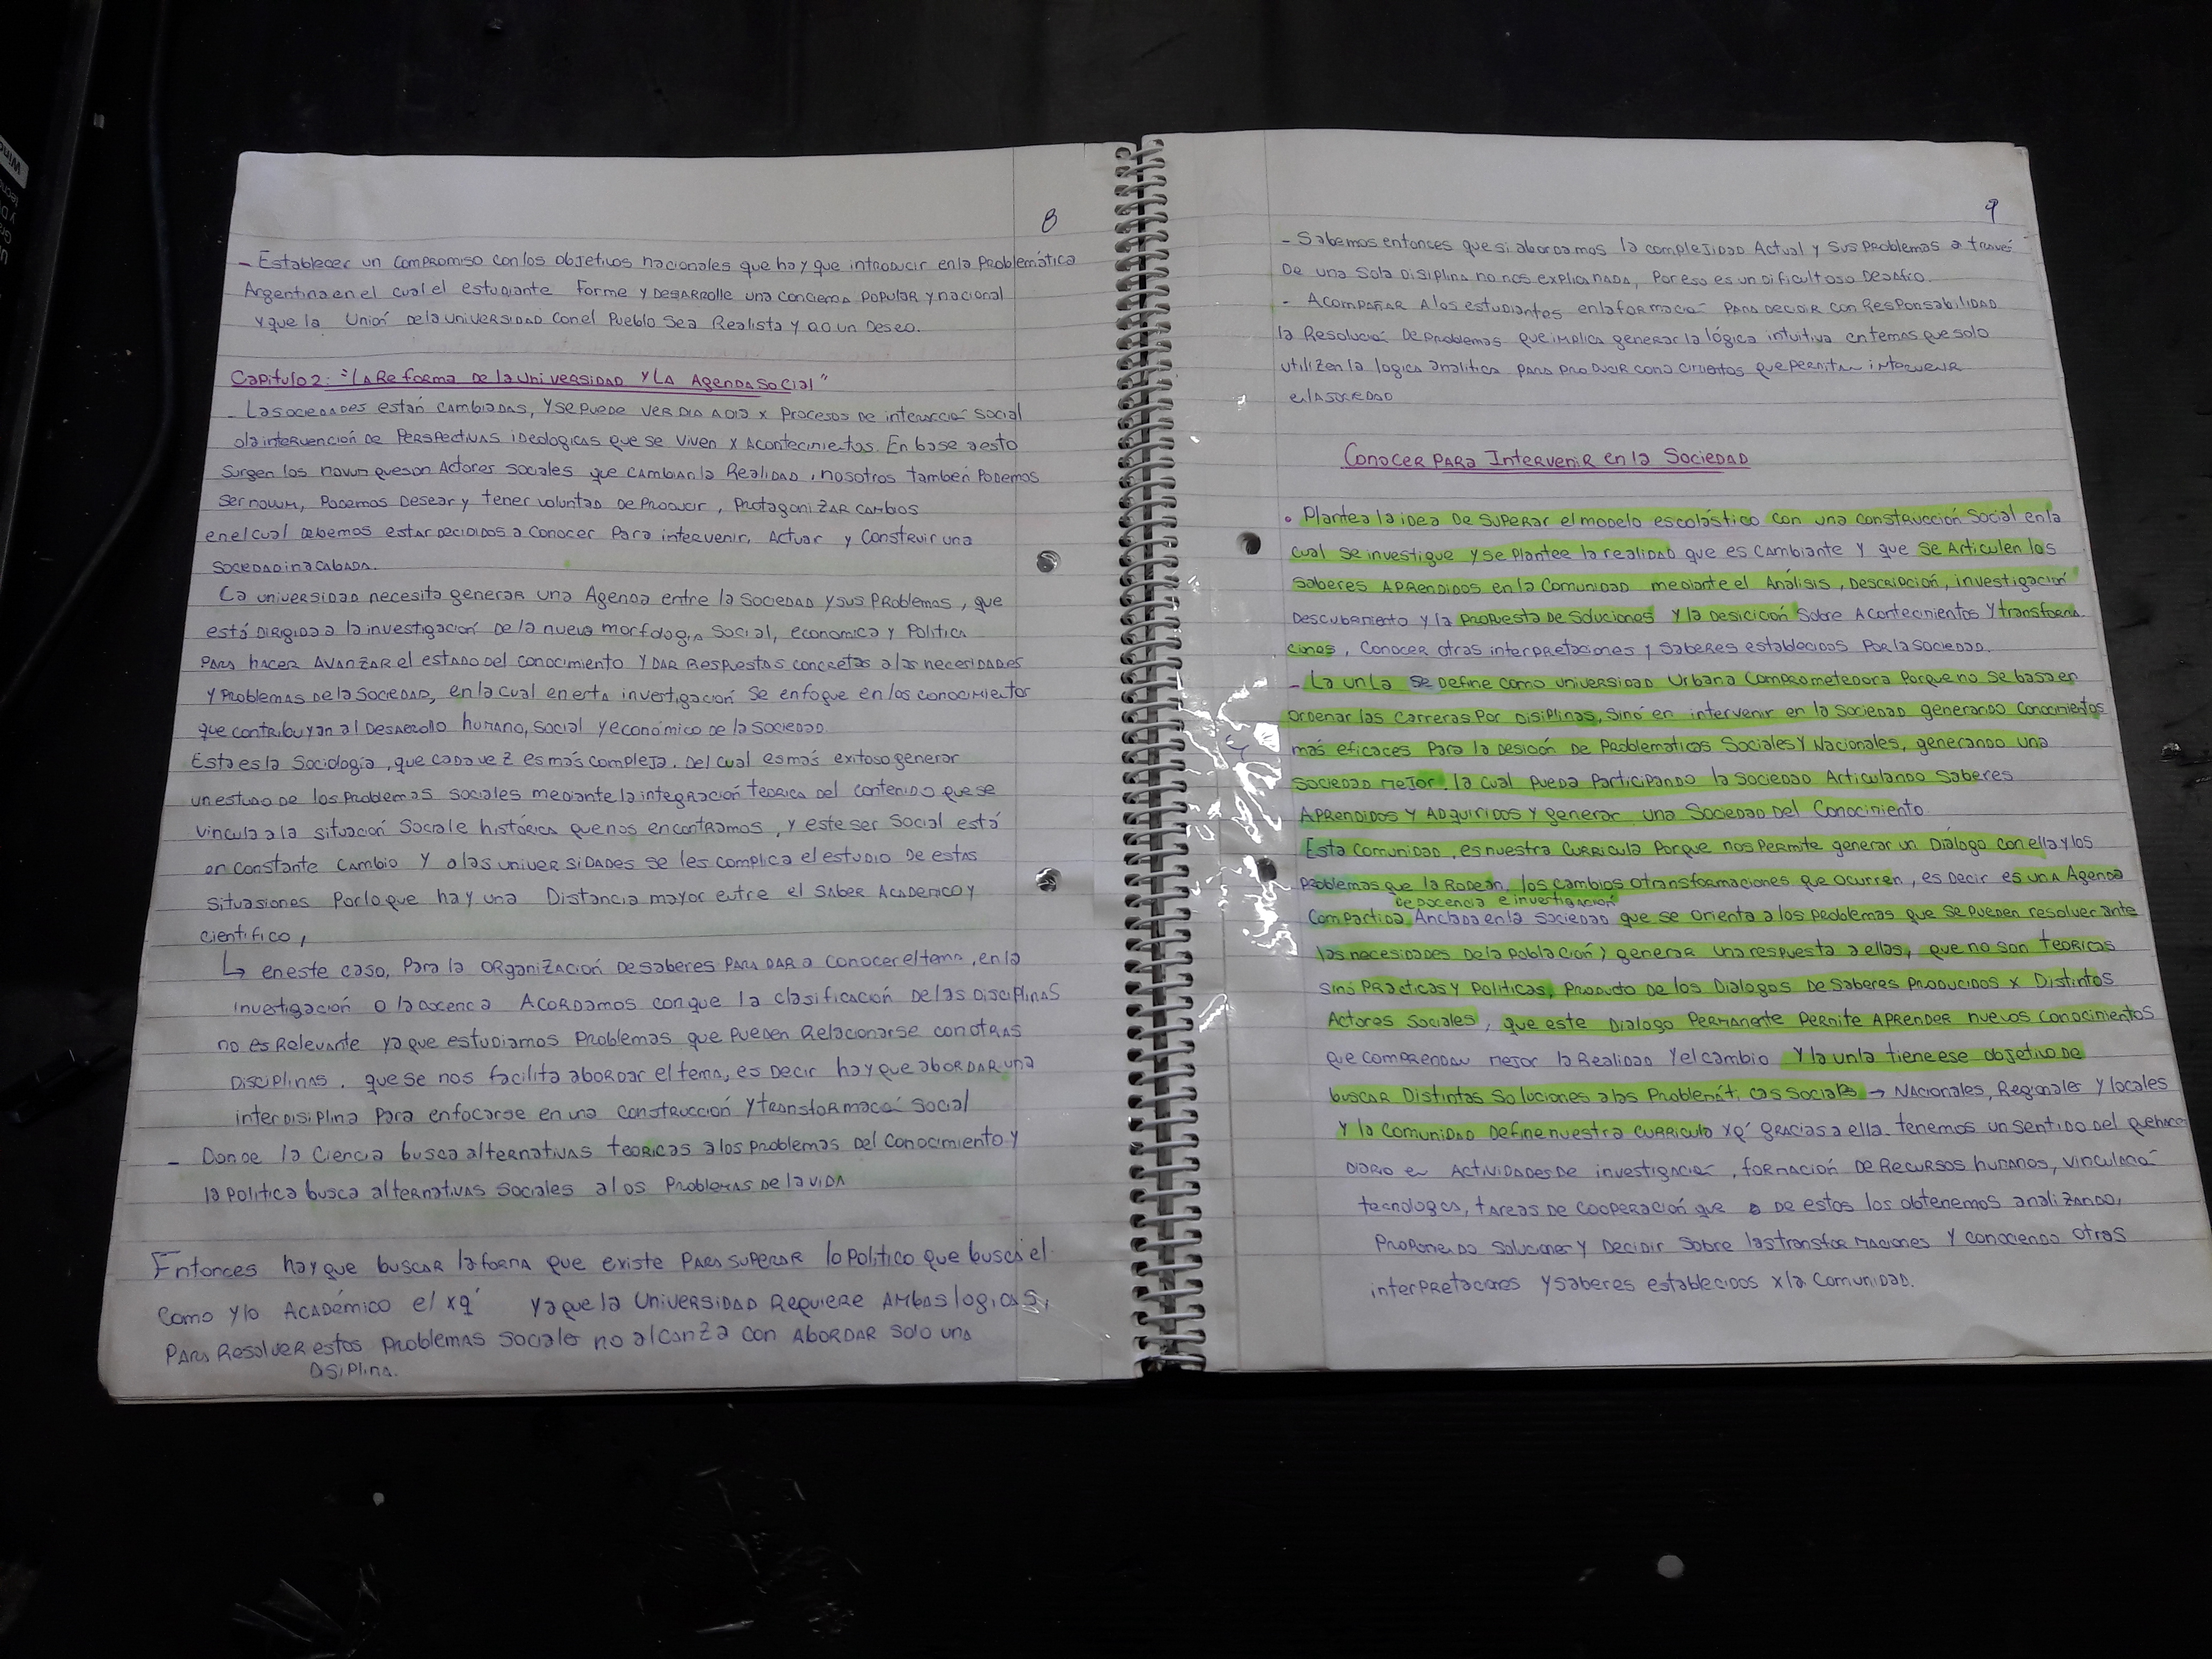 8
- Establecer un compromiso con los objetivos nacionales que hay que introducir en la problemática
Argentina en el cual el estudiante forme y desarrolle una conciencia popular y nacional
y que la Unión de la universidad con el pueblo sea realista y no un deseo.
Capitulo 2: "La Reforma de la Universidad y la Agenda Social"
- Las sociedades están cambiadas, y se puede ver dia a dia x procesos de interacción social
o la intervención de perspectivas ideologicas que se viven x acontecimientos. En base a esto
surgen los novum que son actores sociales que cambian la realidad, nosotros tambien podemos
ser novum, podemos desear y tener voluntad de producir, protagonizar cambios
en el cual debemos estar decididos a conocer para intervenir, actuar y construir una
sociedad inacabada.
La universidad necesita generar una Agenda entre la sociedad y sus problemas, que
está dirigida a la investigación de la nueva morfologia social, economica y politica
para hacer avanzar el estado del conocimiento y dar respuestas concretas a las necesidades
y problemas de la sociedad, en la cual en esta investigación se enfoque en los conocimientos
que contribuyan al desarrollo humano, social y económico de la sociedad
Esta es la sociología, que cada vez es más compleja. Del cual es más exitoso generar
un estudio de los problemas sociales mediante la integración teorica del contenido que se
vincula a la situación social e histórica que nos encontramos, y este ser social está
en constante cambio y a las universidades se les complica el estudio de estas
situasiones por lo que hay una distancia mayor entre el saber academico y
cientifico,
↳ en este caso, para la organización de saberes para dar a conocer el tema, en la
investigación o la docencia acordamos con que la clasificación de las disciplinas
no es relevante ya que estudiamos problemas que pueden relacionarse con otras
disciplinas, que se nos facilita abordar el tema, es decir hay que abordar una
interdisiplina para enfocarse en una construcción y transformación social
- Donde la ciencia busca alternativas teoricas a los problemas del conocimiento y
la politica busca alternativas sociales a los problemas de la vida
Entonces hay que buscar la forma que existe para superar lo politico que busca el
como y lo académico el xq' ya que la universidad requiere ambas logicas,
para resolver estos problemas sociales no alcanza con abordar solo una
disiplina.
9
- Sabemos entonces que si abordamos la complejidad actual y sus problemas a través
de una sola disiplina no nos explica nada, por eso es un dificultoso desafio.
- Acompañar a los estudiantes en la formación para decidir con responsabilidad
la resolución de problemas que implica generar la lógica intuitiva en temas que solo
utilizen la logica analitica para producir conocimientos que permitan intervenir
en la sociedad
Conocer para Intervenir en la Sociedad
• Plantea la idea de superar el modelo escolástico con una construcción social en la
cual se investigue y se plantee la realidad que es cambiante y que se articulen los
saberes aprendidos en la comunidad mediante el análisis, descripción, investigación
descubrimiento y la propuesta de soluciones y la desicición sobre acontecimientos y transforma
ciones, conocer otras interpretaciones y saberes establecidos por la sociedad.
- La unla se define como universidad urbana comprometedora porque no se basa en
ordenar las carreras por disiplinas, sinó en intervenir en la sociedad generando conocimientos
más eficaces para la desición de problematicas sociales y nacionales, generando una
sociedad mejor, la cual pueda participando la sociedad articulando saberes
aprendidos y adquiridos y generar una sociedad del conocimiento
Esta comunidad, es nuestra curricula porque nos permite generar un dialogo con ella y los
problemas que la rodean, los cambios o transformaciones que ocurren, es decir es una Agenda
de docencia e investigación
compartida anclada en la sociedad que se orienta a los problemas que se pueden resolver ante
las necesidades de la población y generar una respuesta a ellas, que no son teoricas
sinó practicas y politicas, producto de los dialogos de saberes producidos x distintos
actores sociales, que este dialogo permanente permite aprender nuevos conocimientos
que comprendan mejor la realidad y el cambio y la unla tiene ese objetivo de
buscar distintas soluciones a las problemáticas sociales → nacionales, regionales y locales
y la comunidad define nuestra curricula xq' gracias a ella tenemos un sentido del quehacer
diario en actividades de investigación, formación de recursos humanos, vinculación
tecnologica, tareas de cooperación que de estos los obtenemos analizando,
proponiendo soluciones y decidir sobre las transformaciones y conociendo otras
interpretaciones y saberes establecidos x la comunidad.